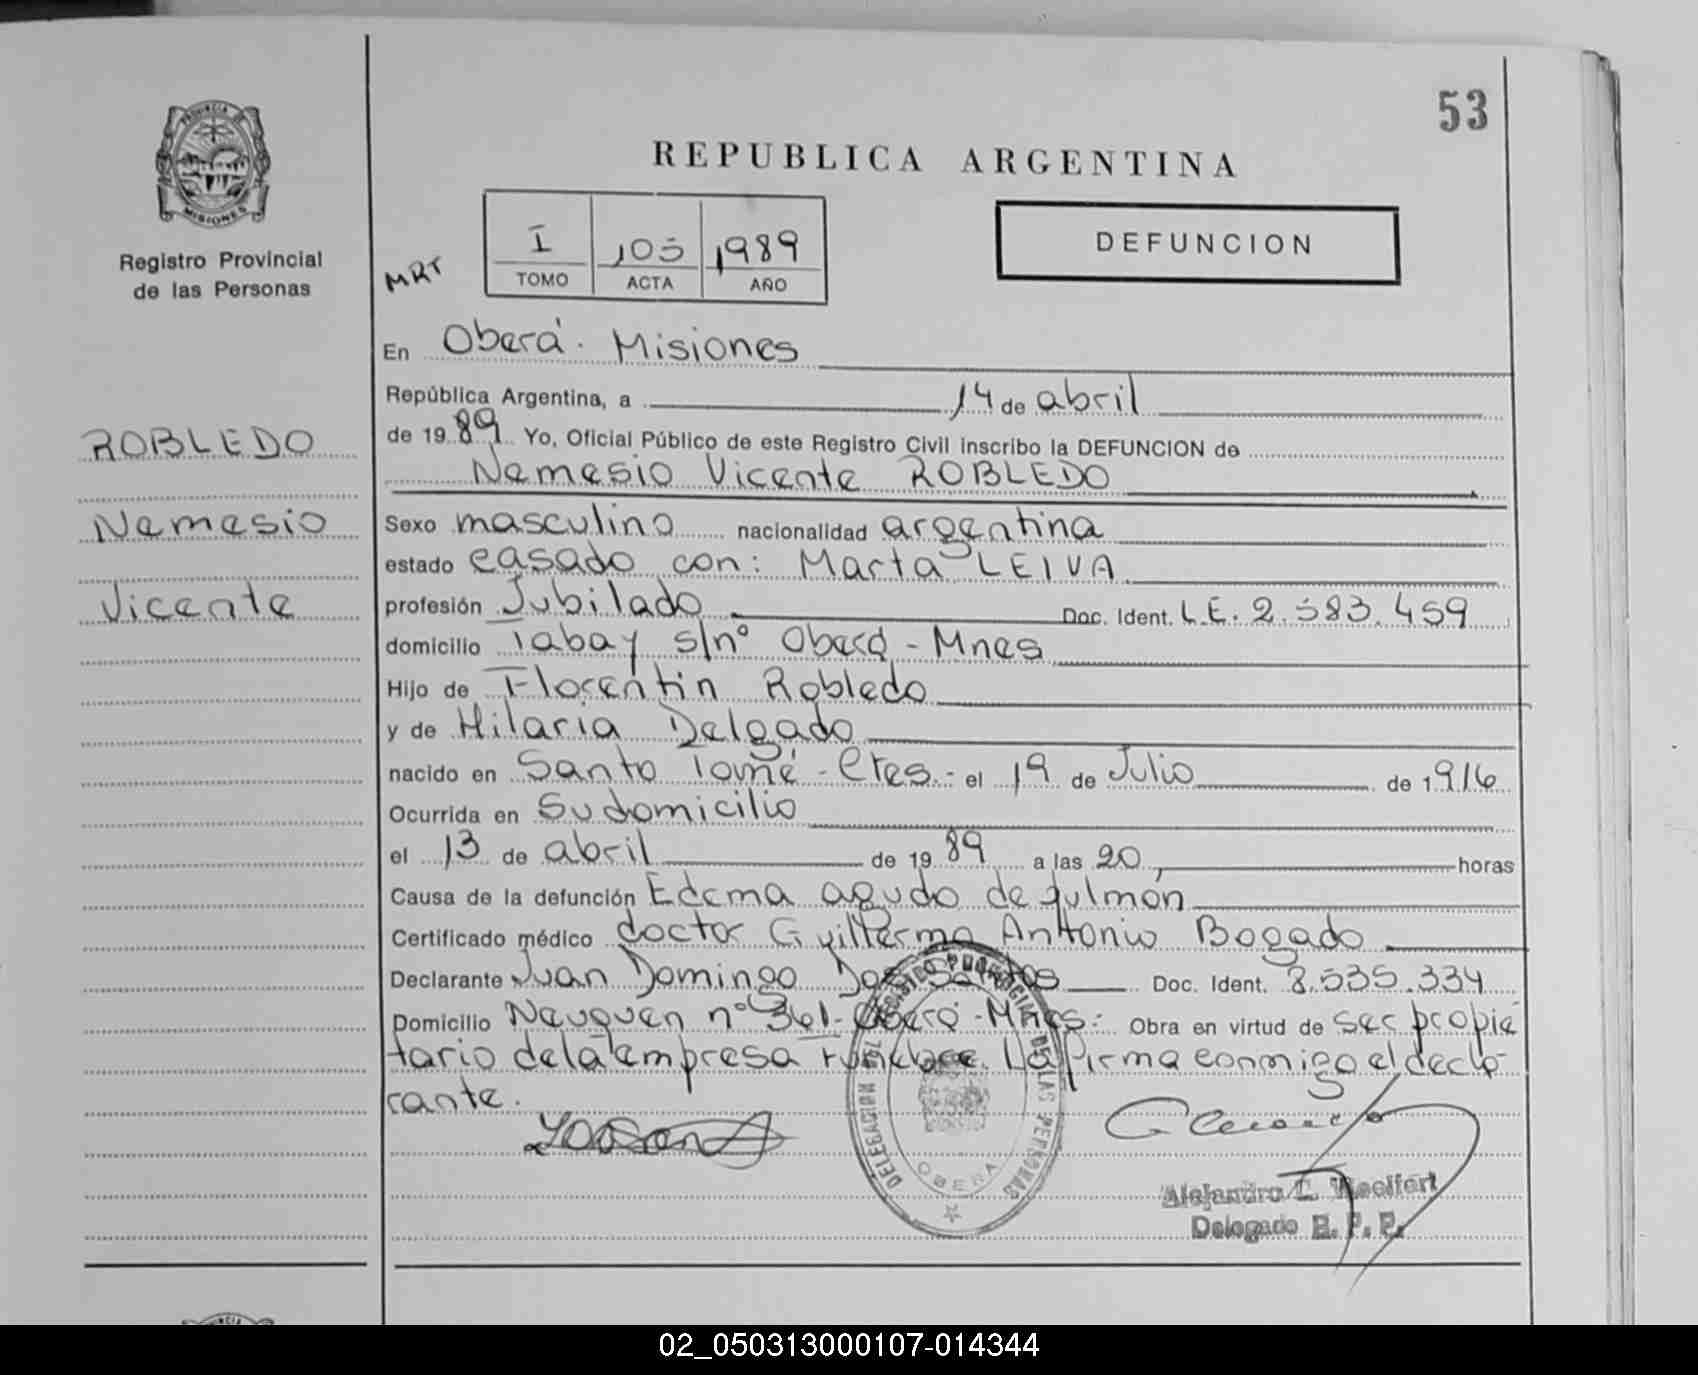 53
PROVINCIA DE
MISIONES
REPUBLICA ARGENTINA
Registro Provincial
de las Personas
MRT
I 105 1989
TOMO ACTA AÑO
DEFUNCION
En Oberá. Misiones
República Argentina, a 14 de abril
de 1989 Yo, Oficial Público de este Registro Civil inscribo la DEFUNCION de
ROBLEDO
Nemesio Vicente ROBLEDO
Nemesio
Sexo masculino nacionalidad argentina
estado casado con: Marta LEIVA
Vicente
profesión Jubilado Doc. Ident. L.E. 2.583.459
domicilio Tabay s/nº Oberá - Mnes
Hijo de Florentin Robledo
y de Hilaria Delgado
nacido en Santo Tomé - Ctes.- el 19 de Julio de 1916
Ocurrida en Su domicilio
el 13 de abril de 1989 a las 20, horas
Causa de la defunción Edema agudo de pulmón
Certificado médico doctor Guillermo Antonio Bogado
Declarante Juan Domingo Dos Santos Doc. Ident. 8.535.334
Domicilio Neuquen nº 361- Oberá - Mnes: Obra en virtud de ser propie
tario de la empresa funebre. La firma conmigo el decla-
rante.
DELEGACION DEL REGISTRO PROVINCIAL DE LAS PERSONAS
OBERA
Alejandro L. Woelfert
Delegado R. P. P.
02_050313000107-014344